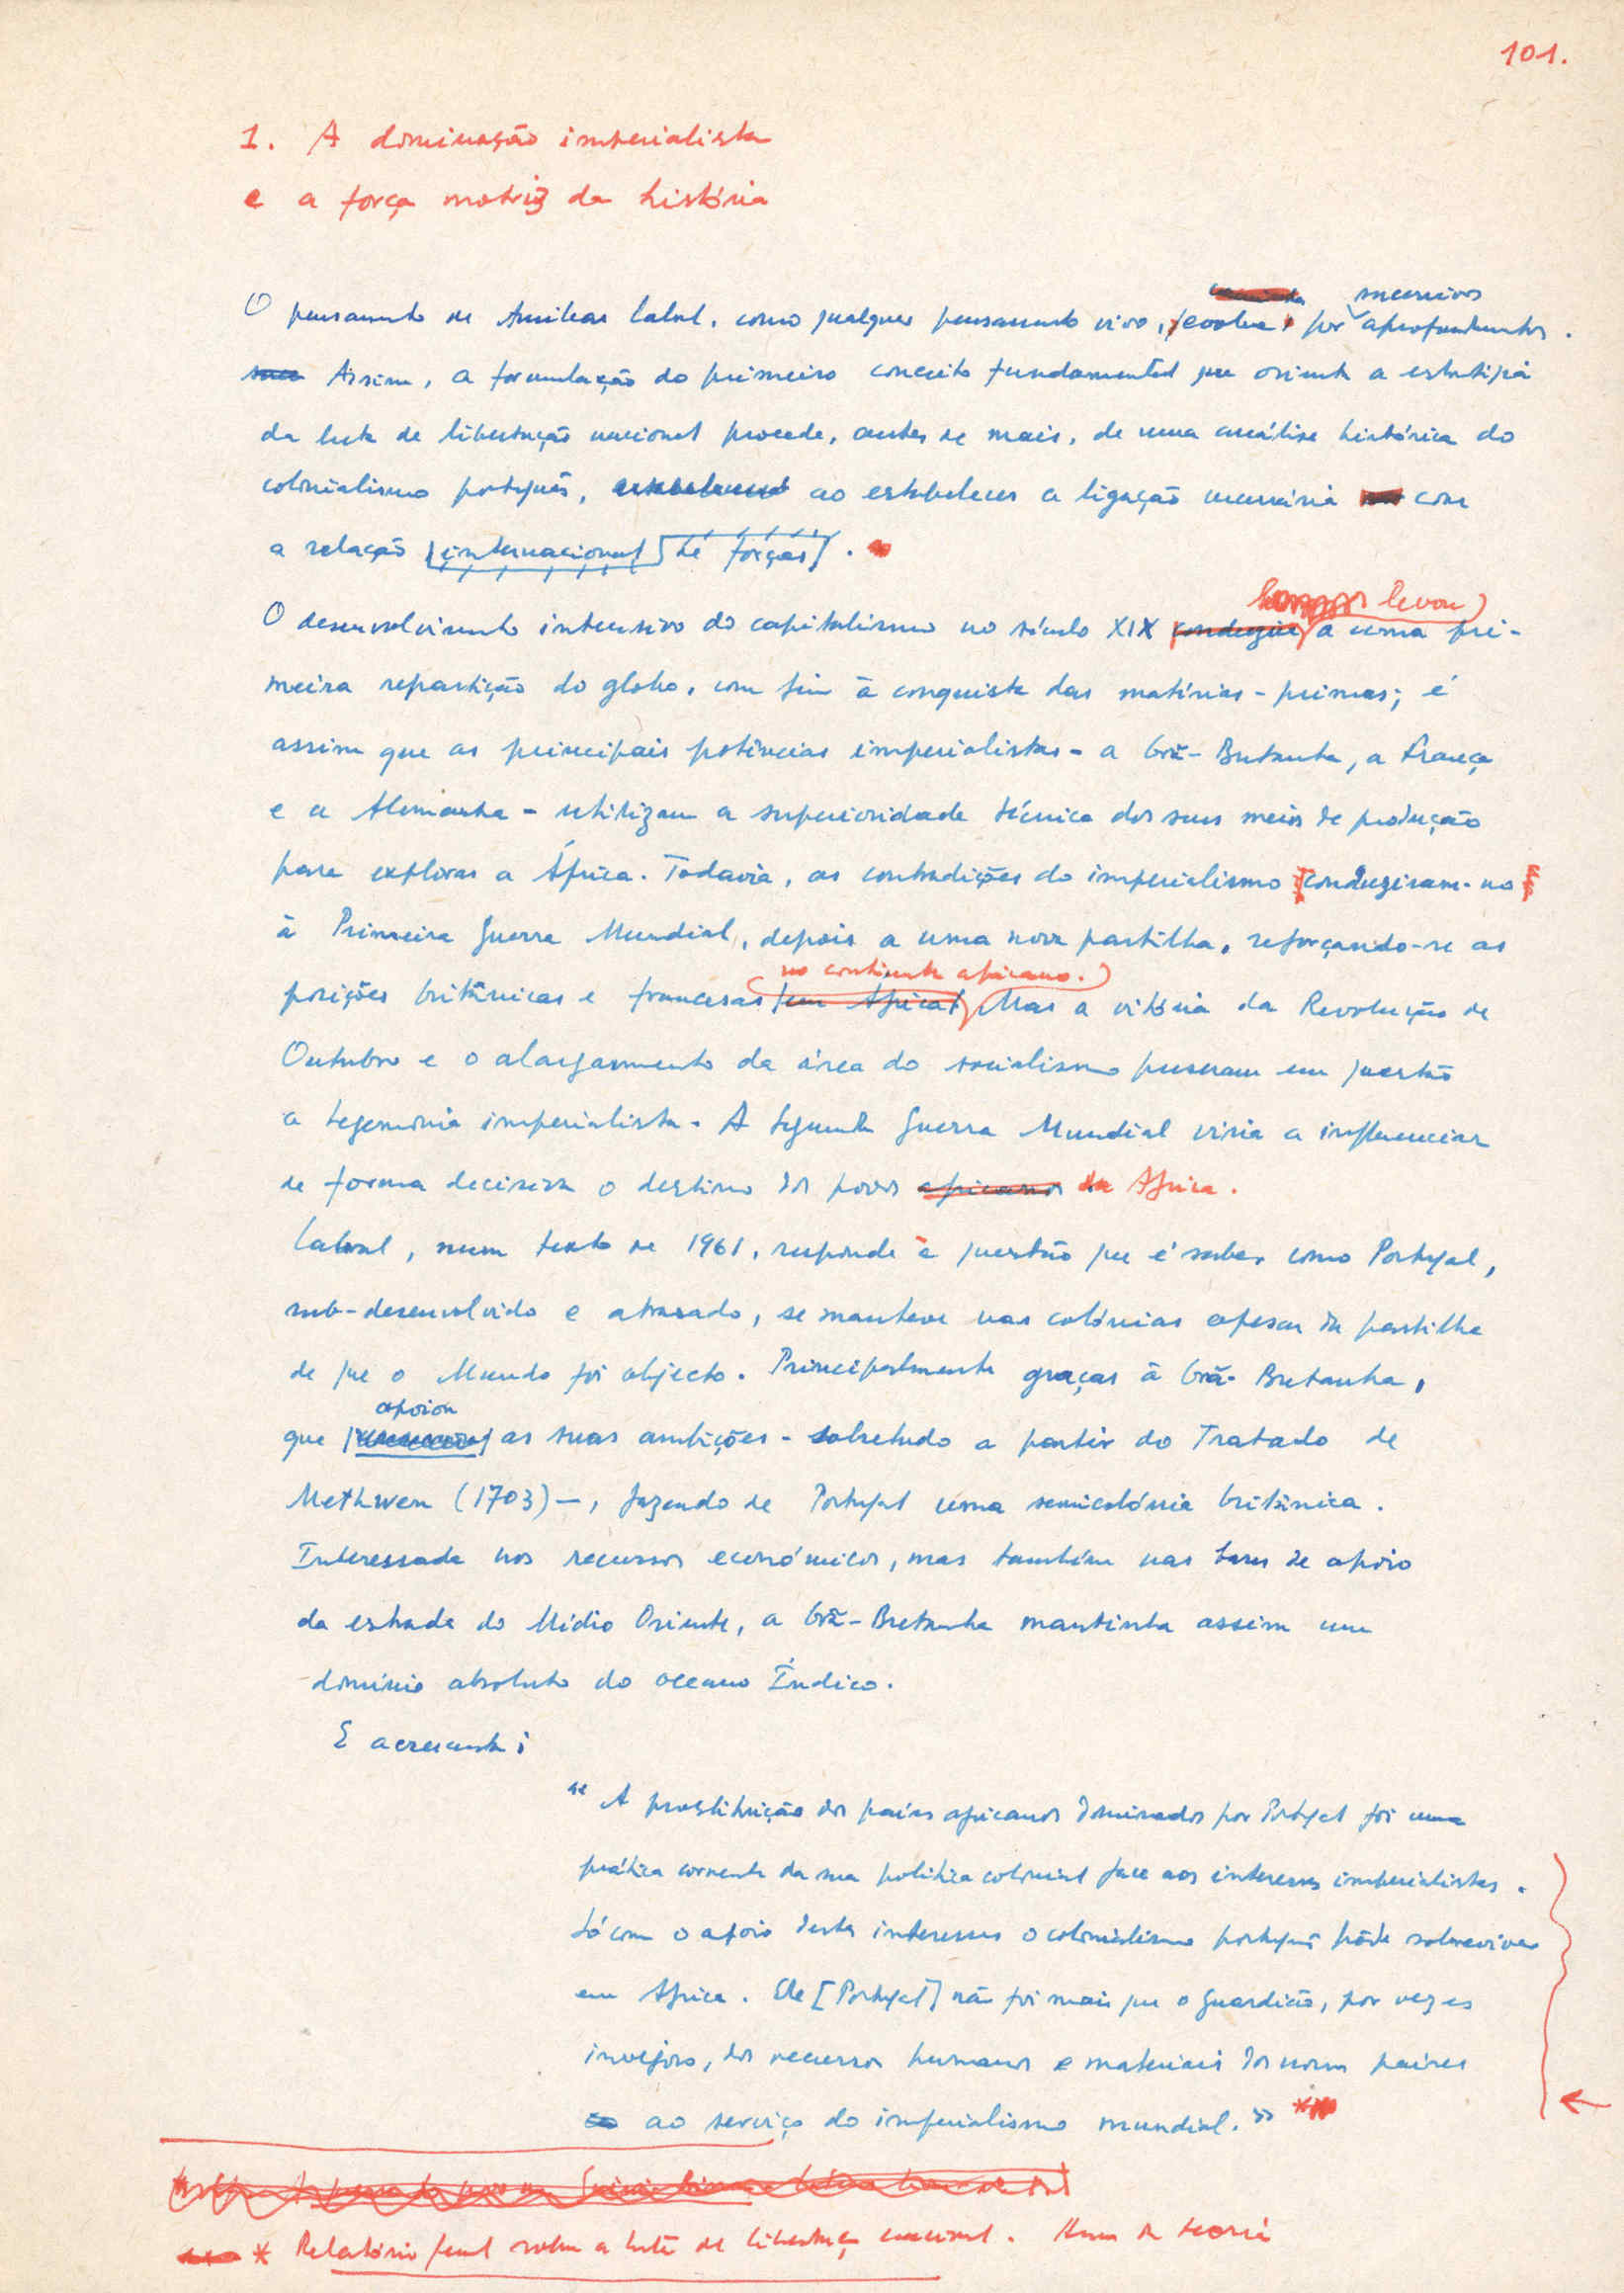 101.
1. A dominação imperialista
e a força motriz da história
sucessivos
O pensamento de Amílcar Cabral, como qualquer pensamento vivo, evolui por aprofundamentos.
Assim, a formulação do primeiro conceito fundamental que orienta a estratégia
da luta de libertação nacional procede, antes de mais, de uma análise histórica do
colonialismo português, ao estabelecer a ligação necessária com
a relação internacional de forças.
levou
O desenvolvimento intensivo do capitalismo no século XIX conduziu a uma pri-
meira repartição do globo, com fim à conquista das matérias-primas; é
assim que as principais potências imperialistas - a Grã-Bretanha, a França
e a Alemanha - utilizam a superioridade técnica dos seus meios de produção
para explorar a África. Todavia, as contradições do imperialismo conduziram-no
à Primeira Guerra Mundial, depois a uma nova partilha, reforçando-se as
no continente africano.
posições britânicas e francesas em África. Mas a vitória da Revolução de
Outubro e o alargamento da área do socialismo puseram em questão
a hegemonia imperialista. A Segunda Guerra Mundial viria a influenciar
de forma decisiva o destino dos povos africanos da África.
Cabral, num texto de 1961, responde à questão que é saber como Portugal,
sub-desenvolvido e atrasado, se manteve nas colónias apesar da partilha
de que o Mundo foi objecto. Principalmente graças à Grã-Bretanha,
apoiou
que as suas ambições - sobretudo a partir do Tratado de
Methwen (1703) -, fazendo de Portugal uma semicolónia britânica.
Interessada nos recursos económicos, mas também nas bases de apoio
da estrada do Médio Oriente, a Grã-Bretanha mantinha assim um
domínio absoluto do oceano Índico.
E acrescenta:
"A prostituição dos países africanos dominados por Portugal foi uma
prática corrente da sua política colonial face aos interesses imperialistas.
Só com o apoio destes interesses o colonialismo português pôde sobreviver
em África. Ele [Portugal] não foi mais que o guardião, por vezes
invejoso, dos recursos humanos e materiais dos nossos países
ao serviço do imperialismo mundial." *
* Relatório geral sobre a luta de libertação nacional. Arma da teoria